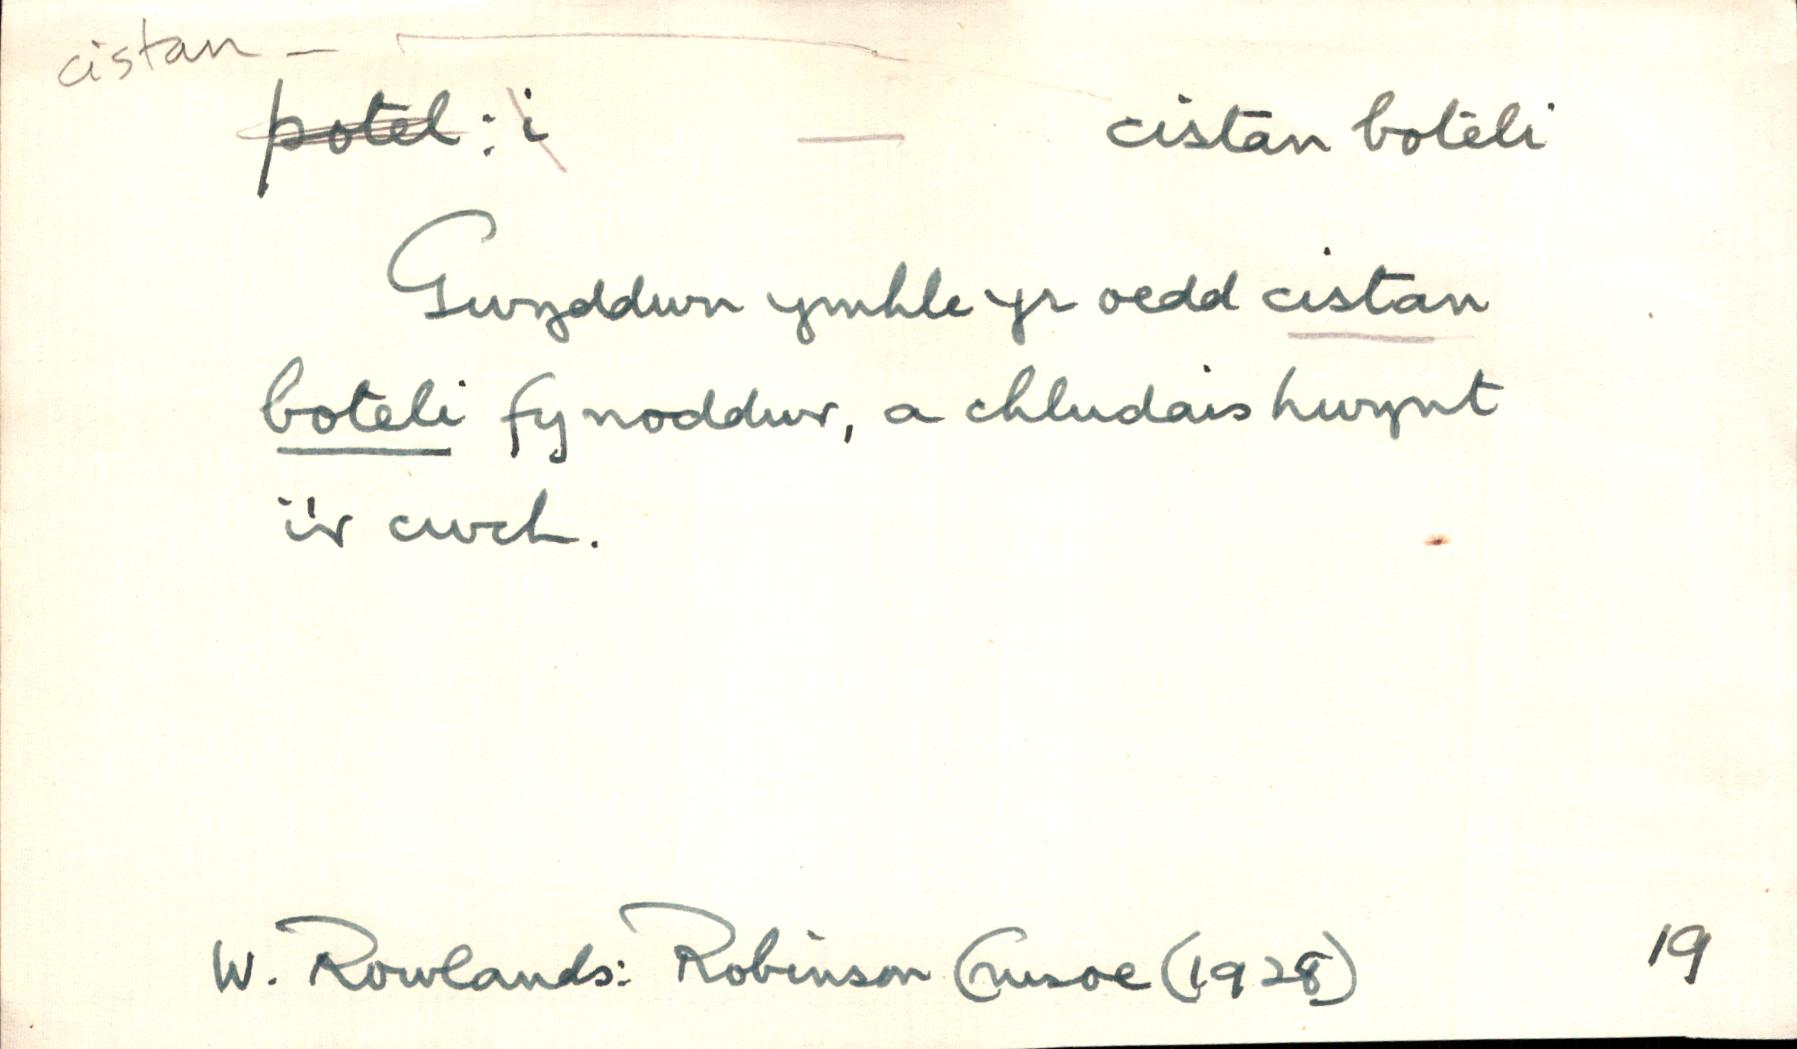 cistan –
potel : i — cistan boteli
Gwyddwn ymhle yr oedd cistan
boteli fy noddwr, a chludais hwynt
i'r cwch.
W. Rowlands: Robinson Crusoe (1928) 19